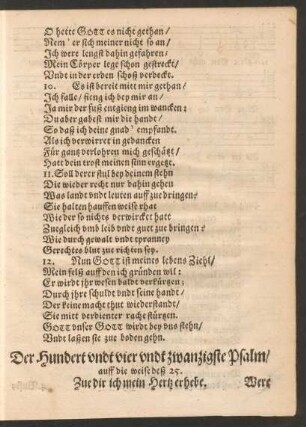 O hette GOTT es nicht gethan/
Nem' er sich meiner nicht so an/
Ich were lengst dahin gefahren/
Mein Cörper lege schon gestreckt/
Vndt in der erden schoß verdeckt.
10. Es ist bereit mitt mir gethan/
Ich falle/ fieng ich bey mir an/
Ja mir der fuß entgieng im wancken:
Du aber gabest mir die handt/
So daß ich deine gnad' empfandt.
Als ich verwirret in gedancken
Für gantz verlohren mich geschätzt/
Hatt dein trost meinen sinn ergetzt.
11. Soll derer stul bey deinem stehn
Die wieder recht nur dahin gehen
Was landt vndt leuten auff zue dringen?
Sie halten hauffen weise rhat
Wie der so nichts verwircket hatt
Zuegleich vmb leib vndt guet zue bringen?
Wie durch gewalt vndt tyranney
Gerechtes blut zue richten sey.
12. Nun GOTT ist meines lebens Ziehl/
Mein felß auff den ich gründen wil:
Er wirdt ihr wesen baldt verkürtzen;
Durch jhre schuldt vndt seine handt/
Der keine macht thut wiederstandt/
Sie mitt verdienter rache stürtzen.
GOTT vnser GOTT wirdt bey vns stehn/
Vndt laßen sie zue boden gehn.
Der Hundert vndt vier vndt zwanzigste Psalm/
auff die weise deß 25.
Zue dir ich mein Hertz erhebe.
Were